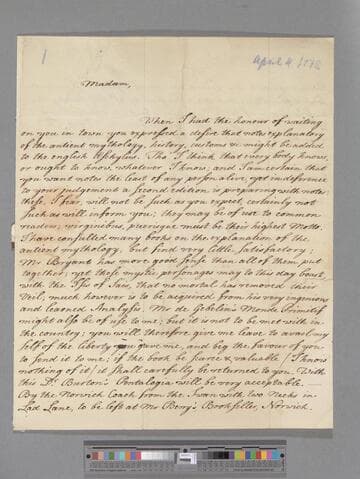 1
April 4 1778
Madam,
When I had the honour of waiting
on you in town you expressed a desire that notes explanatory
of the antient mythology, history, customs &c might be added
to the english Æschylus. Tho' I think that every body knows,
or ought to know, whatever I know, and I am certain that
you want notes the least of any person alive, yet in deference
to your judgement a second edition is preparing with notes:
these, I fear, will not be such as you expect, certainly not
such as will inform you; they may be of use to common
readers; virginibus, puerisque must be their highest Motto.
I have consulted many books on the explanation of the
antient mythology, but find very little satisfactory:
Mr Bryant has more good sense than all of them put
together; yet these mystic personages may to this day boast,
with the Isis of Sais, that no mortal has removed their
Veil; much however is to be acquired from his very ingenious
and learned Analysis. Mr de Gebelin's Monde Primitif
might also be of use to me; but it is not to be met with in
the country; you will therefore give me leave to avail my
self of the liberty you gave me, and beg the favour of you
to send it to me; if the book be scarce & valuable (I know
nothing of it) it shall carefully be returned to you. With
this Dr Burton's Pentalogia will be very acceptable.
By the Norwich Coach from the Swan with two Necks in
Lad Lane, to be left at Mr Berry's Bookseller, Norwich